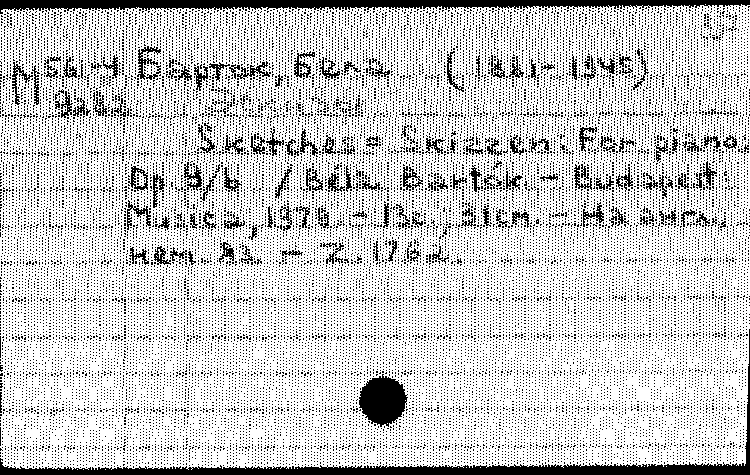 М 56I-4 Барток, Бела (1881-1945)
9282 Эскизы
Sketches = Skizzen: For piano.
Op. 9/b / Béla Bartók. - Budapest:
Musica, 1970. - 13с.; 31см. - На англ.,
нем. яз. - Z. 1762.